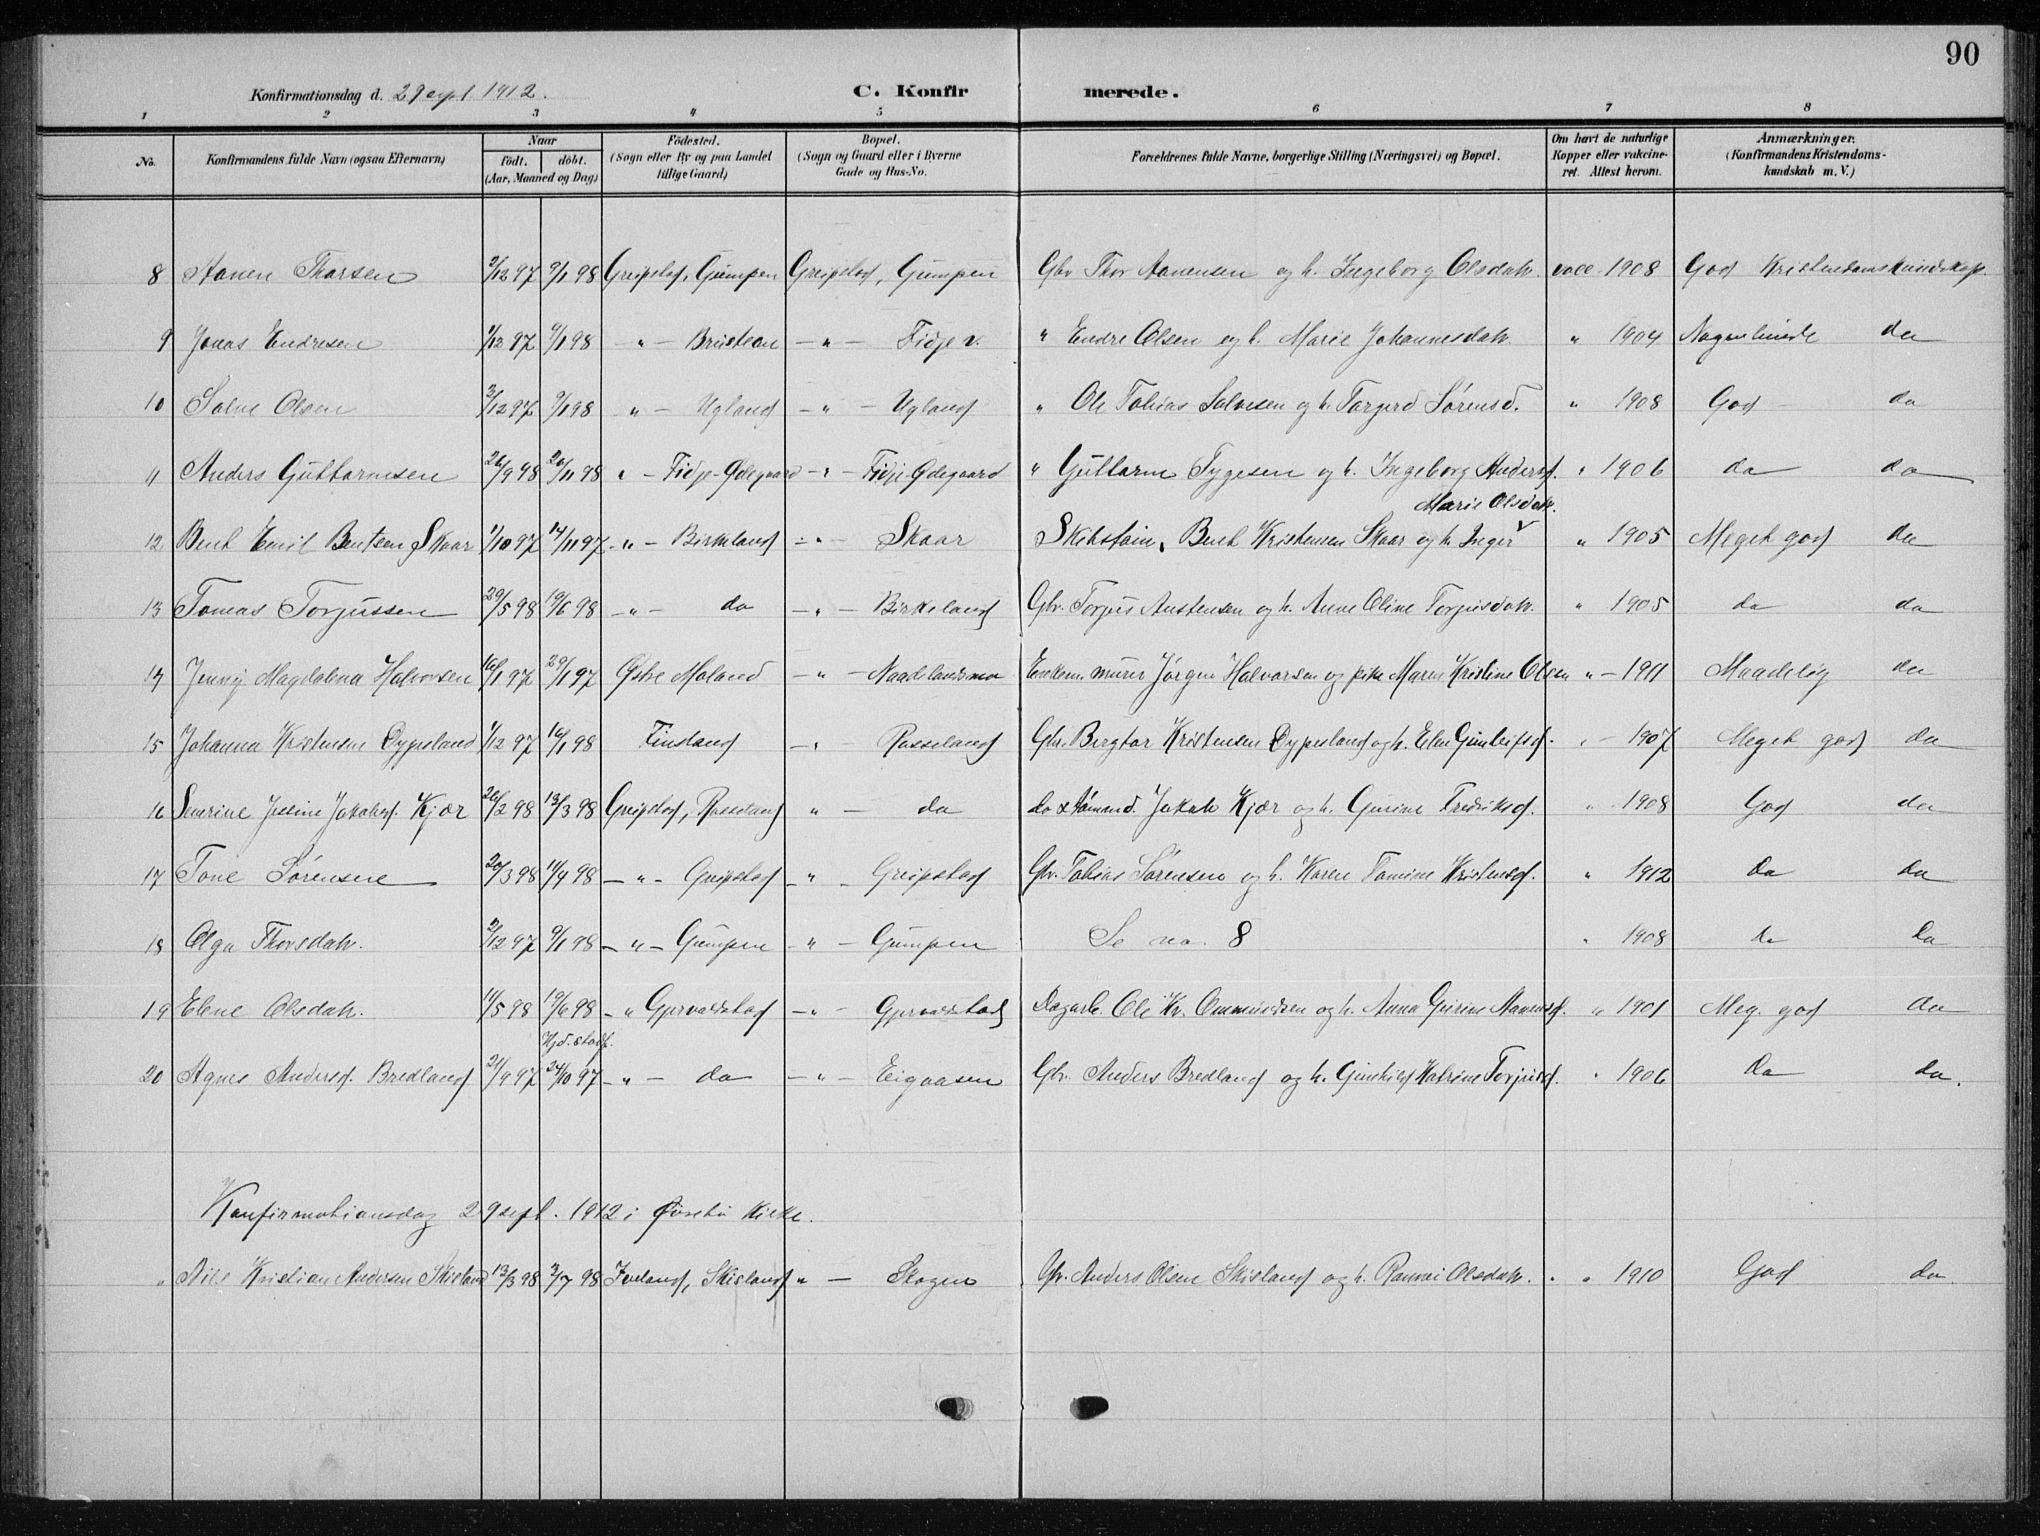 90
Konfirmationsdag d. 29 sept. 1912. C. Konfirmerede.
1 2 3 4 5 6 7 8
No. Konfirmandens fulde Navn (ogsaa Efternavn) Naar født. døbt. (Aar, Maaned og Dag) Fødested. (Sogn eller By og paa Landet tillige Gaard) Bopæl. (Sogn og Gaard eller i Byerne Gade og Hus-No. Forældrenes fulde Navne, borgerlige Stilling (Næringsvei) og Bopæl. Om havt de naturlige Kopper eller vakcineret. Attest herom. Anmærkninger. (Konfirmandens Kristendomskundskab m. V.)
8 Aanen Thorsen 2/12 97 9/1 98 Greipstad, Gumpen Greipstad, Gumpen Gbr Thor Aanensen og h. Ingeborg Olsdatr. vacc. 1908 God Kristendomskundskap.
9 Jonas Endresen 1/12 97 9/1 98 - " - - " - Fidje v. " Endre Olsen og h. Marie Johannesdatr. " 1904 Nogenlunde do
10 Salve Olsen 3/12 97 9/1 98 " - Ugland - " - Ugland " Ole Tobias Salvesen og h. Torgerd Sørensd. " 1908 God do
11 Anders Guttormsen 26/9 98 20/11 98 " - Fidje-Ødegaard - " - Fidje-Ødegaard " Guttorm Tygesen og h. Ingeborg Andersd. " 1906 do do
Marie Olsdatr.
12 Bent Emil Bentsen Skaar 1/10 97 14/11 97 - " - Birkeland - " - Skaar Skibstøm. Bent Kristensen Skaar og h. Inger v " 1905 Meget god do
13 Tomas Torjussen 29/5 98 19/6 98 - " - do - " - Birkeland Gbr. Torjus Austensen og h. Anne Oline Torjusdatr. " 1905 do do
14 Jenny Magdalena Halvorsen 16/1 97 29/1 97 Østre Moland - " - Naadelandsmo Enkem. murer Jørgen Halvorsen og pike Maren Kristine Olsen " - 1911 Maadelig do
15 Johanna Kristensen Dypesland 1/12 97 16/1 98 Finsland - " Rosseland Gbr. Bergtor Kristensen Dypesland og h. Elen Gunleifsd. " - 1907 Meget god do
16 Severine Jessine Jakobsd. Kjær 26/2 98 13/3 98 Greipstad, Rosseland " - do do & tømmd. Jakob Kjær og h. Gurine Fredriksd. " 1908 God do
17 Tone Sørensen 20/3 98 11/4 98 - " - Greipstad - " - Greipstad Gbr. Tobias Sørensen og h. Karen Tomine Kristensd. " 1912 do do
18 Olga Thorsdatr. 2/12 97 9/1 98 - " - Gumpen - " - Gumpen Se no. 8 " 1908 do do
19 Elene Olsdatr. 11/5 98 19/6 98 - " Gjervoldstad - " - Gjervoldstad Dagarb. Ole Kr. Ommundsen og h. Anna Gurine Aanensd. " 1901 Meg. god do
Hjd. stadf.
20 Agnes Andersd. Bredland 21/9 97 24/10 97 - " - do - " - Eigaasen Gbr. Anders Bredland og h. Gunhild Katrine Torjusd. " 1906 do do.
Konfirmationsdag 29 sept. 1912 i Øvrebø Kirke.
" Nils Kristian Andersen Skisland 13/3 98 3/7 98 Iveland, Skisland " - Skogen Gbr. Anders Olsen Skisland og h. Rannei Olsdatr. " " 1910 God do